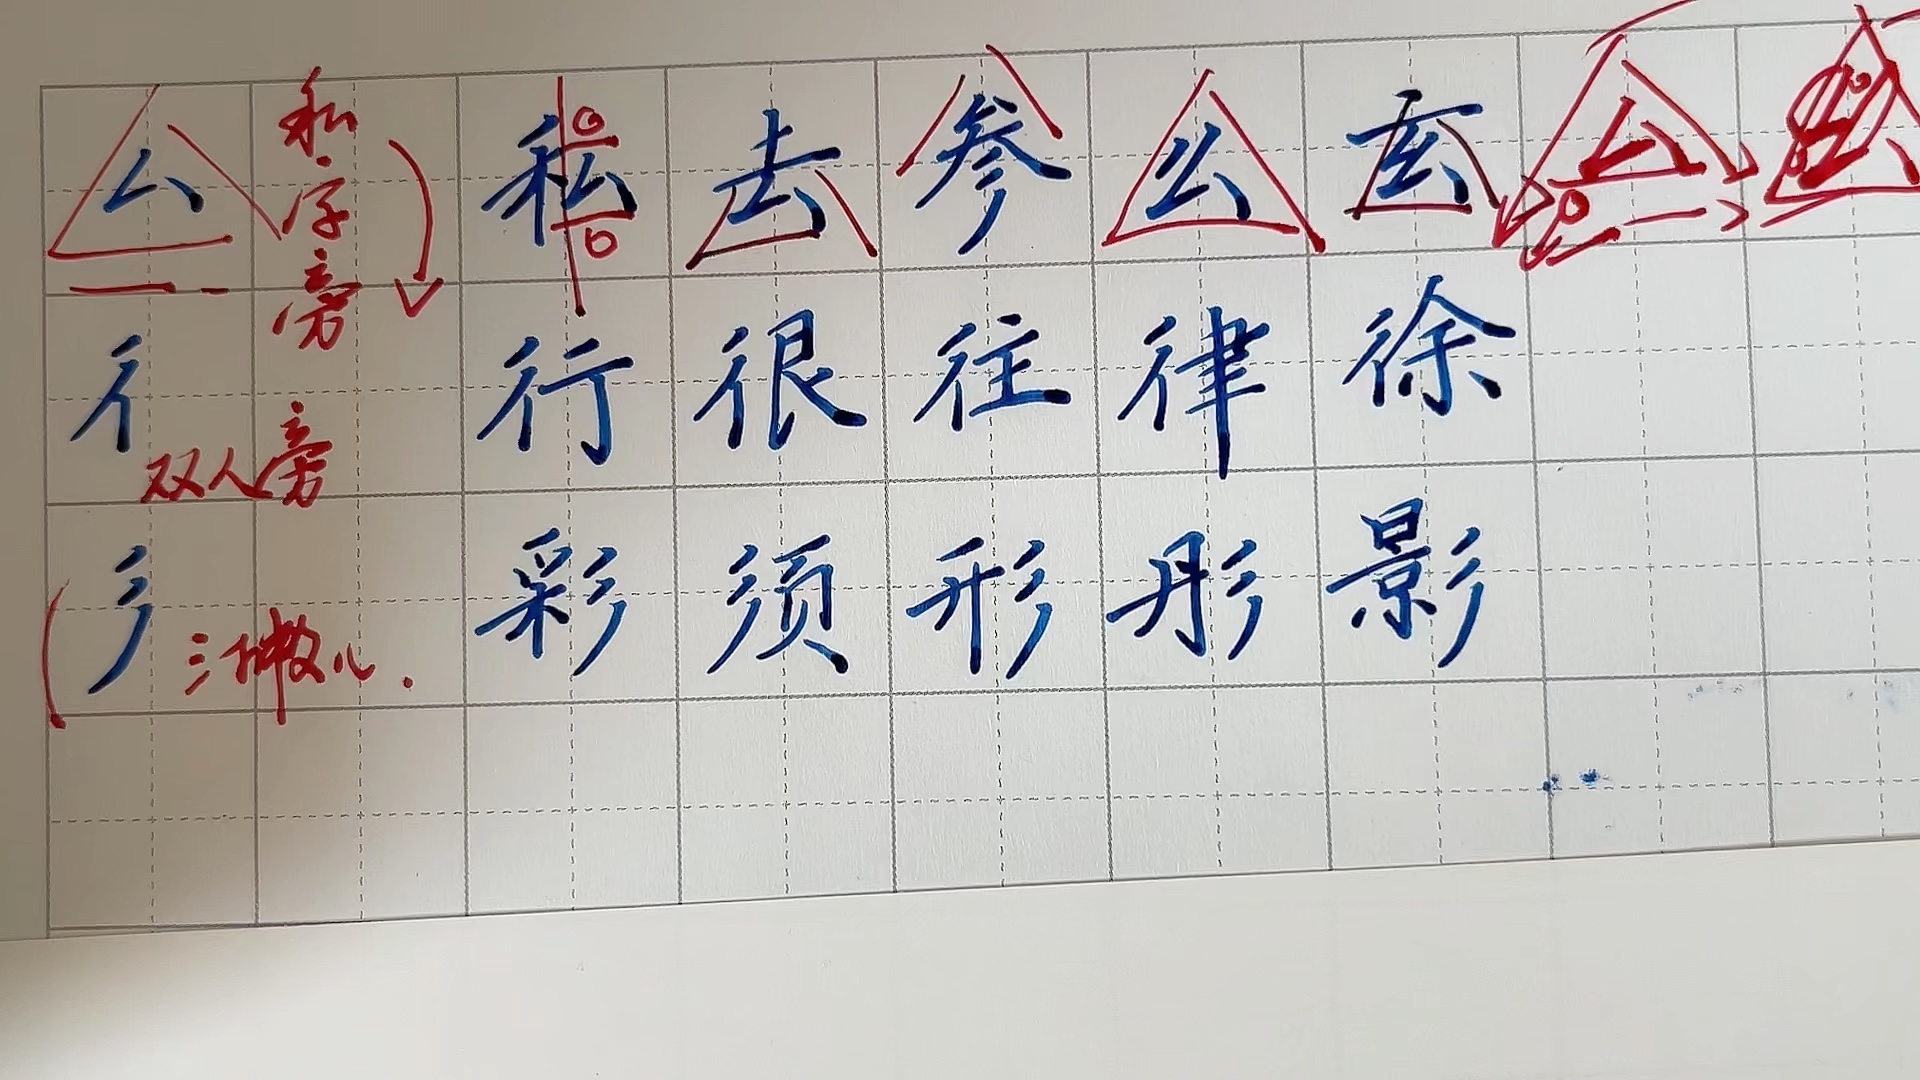 厶 私字旁 私 去 参 么 玄 厶
彳 双人旁 行 很 往 律 徐
彡 三撇儿 彩 须 形 彤 影